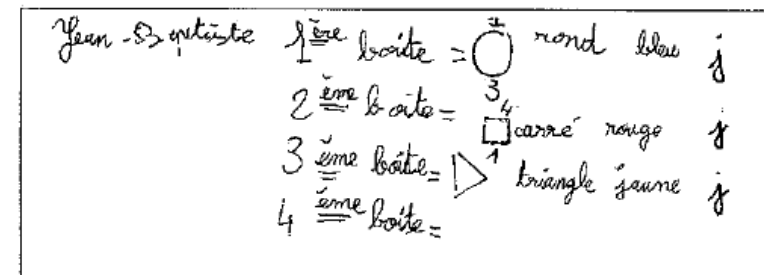 Jean-Baptiste 1ère boîte = 1 rond bleu j
3
2ème boite = 4 carré rouge j
1
3ème boîte = triangle jaune j
4ème boîte =